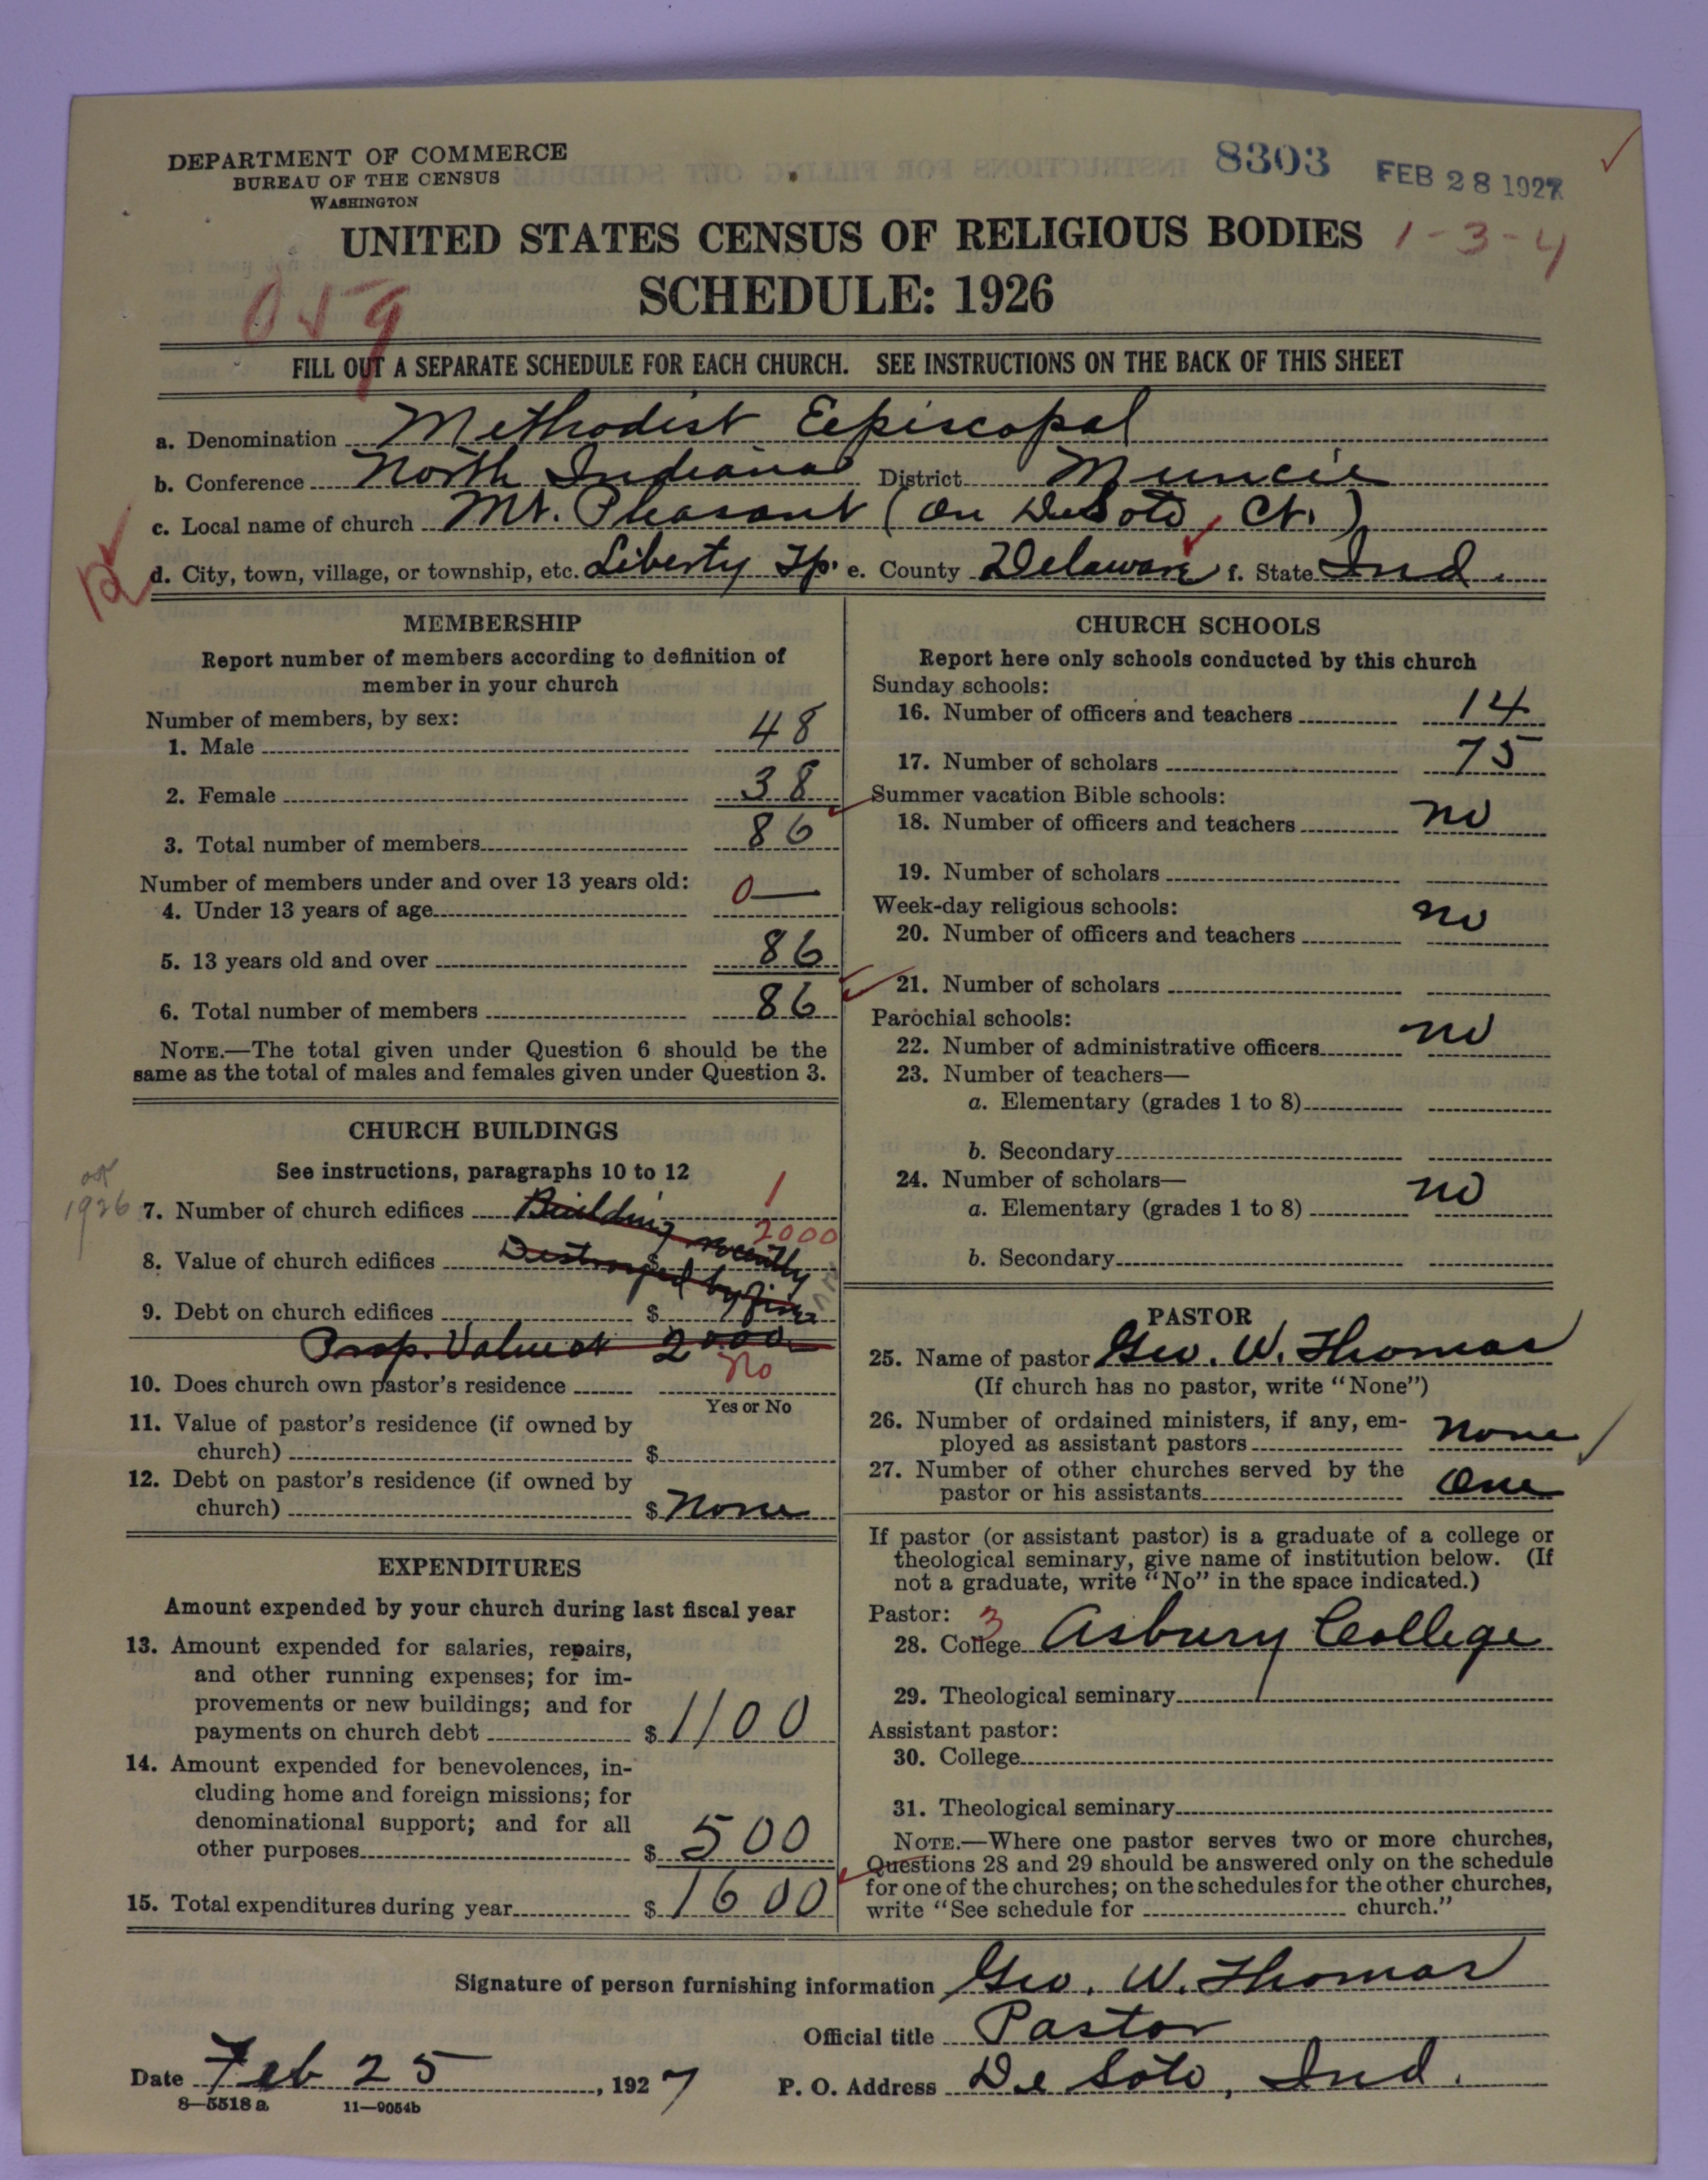 DEPARTMENT OF COMMERCE
BUREAU OF THE CENSUS
WASHINGTON
8303
FEB 28 1927
UNITED STATES CENSUS OF RELIGIOUS BODIES
1-3-4
SCHEDULE: 1926
059
FILL OUT A SEPARATE SCHEDULE FOR EACH CHURCH. SEE INSTRUCTIONS ON THE BACK OF THIS SHEET
a. Denomination Methodist Eepiscopal
b. Conference North Indiana District Muncie
c. Local name of church Mt. Pleasant (on DeSoto, Ct.)
d. City, town, village, or township, etc. Liberty Tp. e. County Delaware f. State Ind.
MEMBERSHIP
Report number of members according to definition of
member in your church
Number of members, by sex:
1. Male 48
2. Female 38
3. Total number of members 86
Number of members under and over 13 years old:
4. Under 13 years of age 0—
5. 13 years old and over 86
6. Total number of members 86
NOTE.—The total given under Question 6 should be the
same as the total of males and females given under Question 3.
CHURCH BUILDINGS
See instructions, paragraphs 10 to 12
1926
7. Number of church edifices Building recently 1
8. Value of church edifices Destroyed by fire $ 2000
9. Debt on church edifices $
Prop. Valued at 2000
10. Does church own pastor's residence No
Yes or No
11. Value of pastor's residence (if owned by
church) $
12. Debt on pastor's residence (if owned by
church) $ None
EXPENDITURES
Amount expended by your church during last fiscal year
13. Amount expended for salaries, repairs,
and other running expenses; for im-
provements or new buildings; and for
payments on church debt $ 1100
14. Amount expended for benevolences, in-
cluding home and foreign missions; for
denominational support; and for all
other purposes $ 500
15. Total expenditures during year $ 1600
CHURCH SCHOOLS
Report here only schools conducted by this church
Sunday schools:
16. Number of officers and teachers 14
17. Number of scholars 75
Summer vacation Bible schools:
18. Number of officers and teachers no
19. Number of scholars
Week-day religious schools:
20. Number of officers and teachers no
21. Number of scholars
Parochial schools:
22. Number of administrative officers no
23. Number of teachers—
a. Elementary (grades 1 to 8)
b. Secondary
24. Number of scholars—
a. Elementary (grades 1 to 8) no
b. Secondary
PASTOR
25. Name of pastor Geo. W. Thomas
(If church has no pastor, write "None")
26. Number of ordained ministers, if any, em-
ployed as assistant pastors None
27. Number of other churches served by the
pastor or his assistants One
If pastor (or assistant pastor) is a graduate of a college or
theological seminary, give name of institution below. (If
not a graduate, write "No" in the space indicated.)
Pastor: 3
28. College Asbury College
29. Theological seminary
Assistant pastor:
30. College
31. Theological seminary
NOTE.—Where one pastor serves two or more churches,
Questions 28 and 29 should be answered only on the schedule
for one of the churches; on the schedules for the other churches,
write "See schedule for church."
Signature of person furnishing information Geo. W. Thomas
Official title Pastor
Date Feb 25, 1927 P. O. Address De Soto, Ind.
8—5518 a 11—9054b